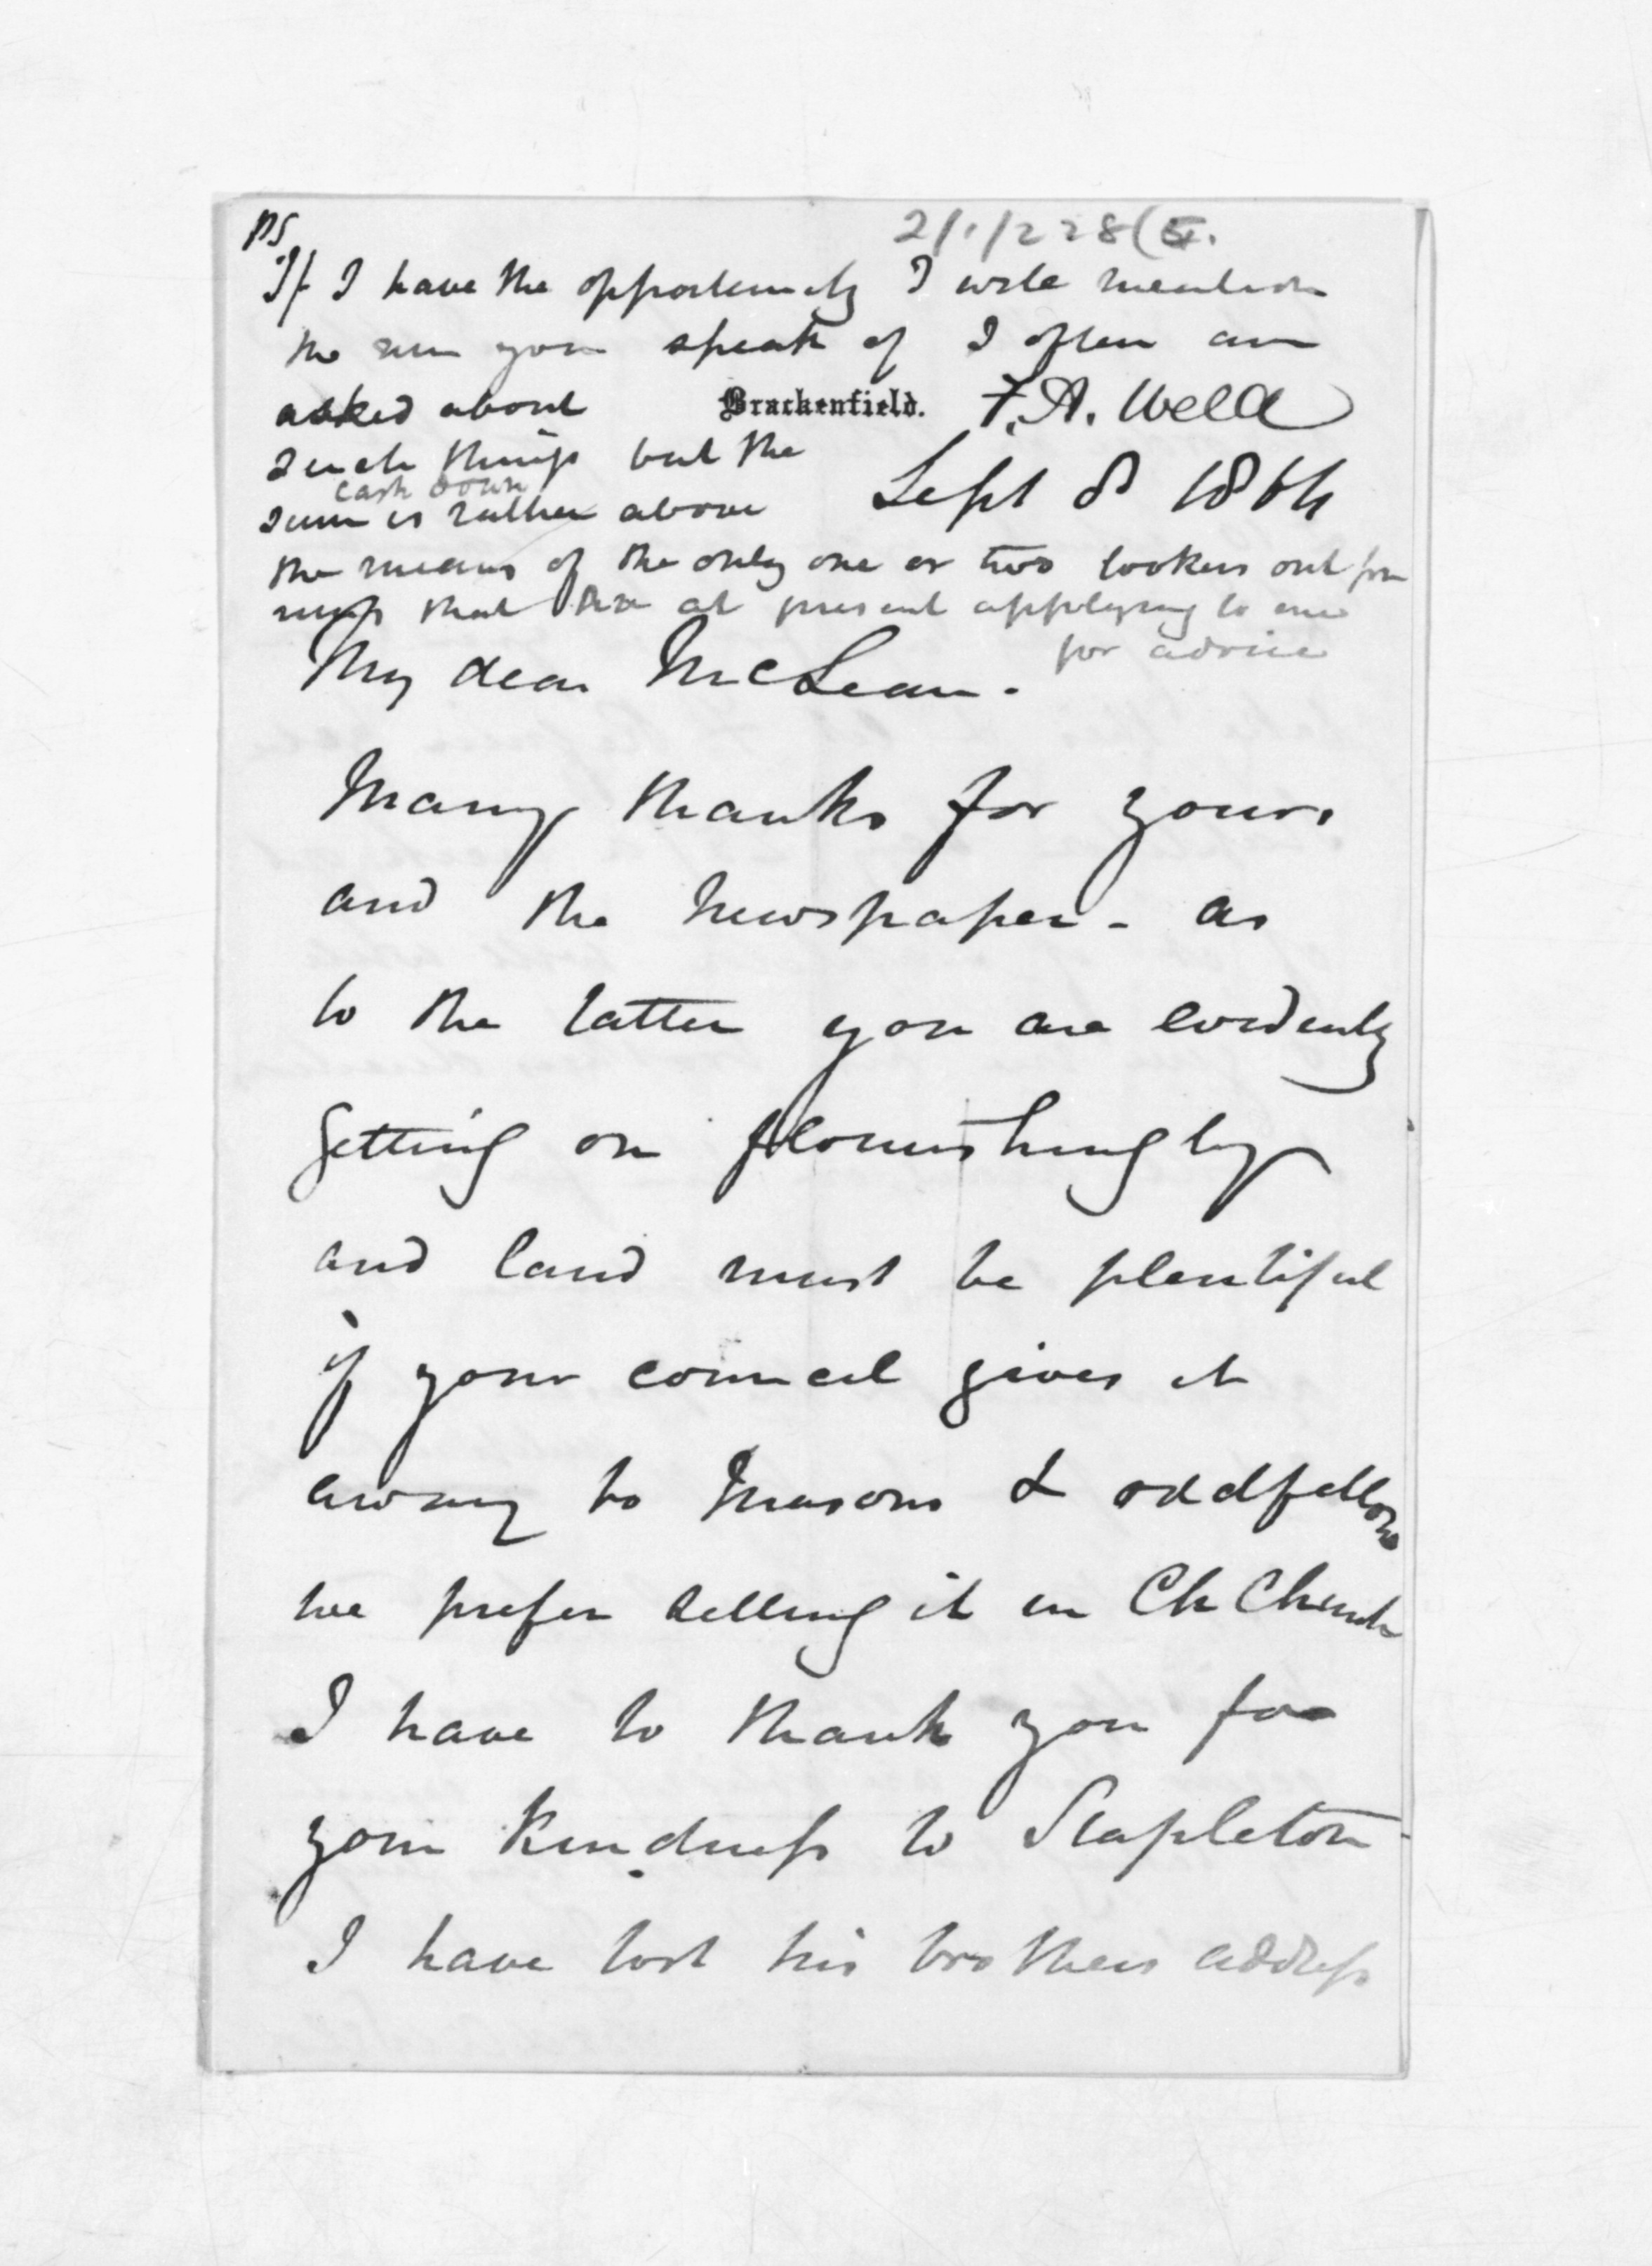 PS
2/1/228(5.
If I have the opportunity I will mention
the run you speak of I often am
asked about
Brackenfield. F. A. Weld
such things but the
Sept 8 1864
cash down
sum is rather above
the means of the only one or two lookers out for
runs that are at present applying to me
for advice
My dear McLean.
Many thanks for yours
and the newspaper - as
to the latter you are evidently
getting on flourishingly
and land must be plentiful
if your council gives it
away to Masons & oddfellows
we prefer selling it in Ch Church
I have to thank you for
your kindness to Stapleton
I have lost his brothers address